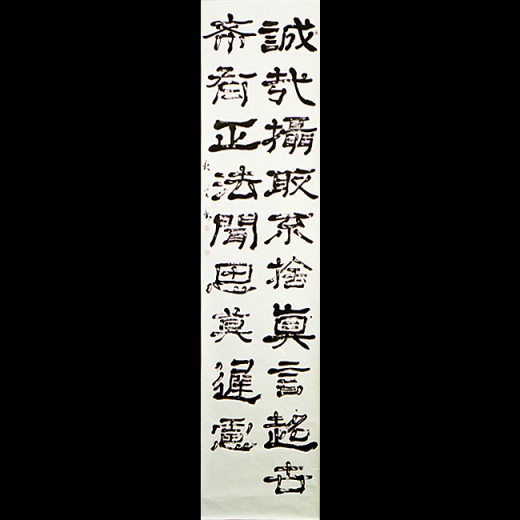 誠哉攝取不捨真言超世
希有正法聞思莫遲慮